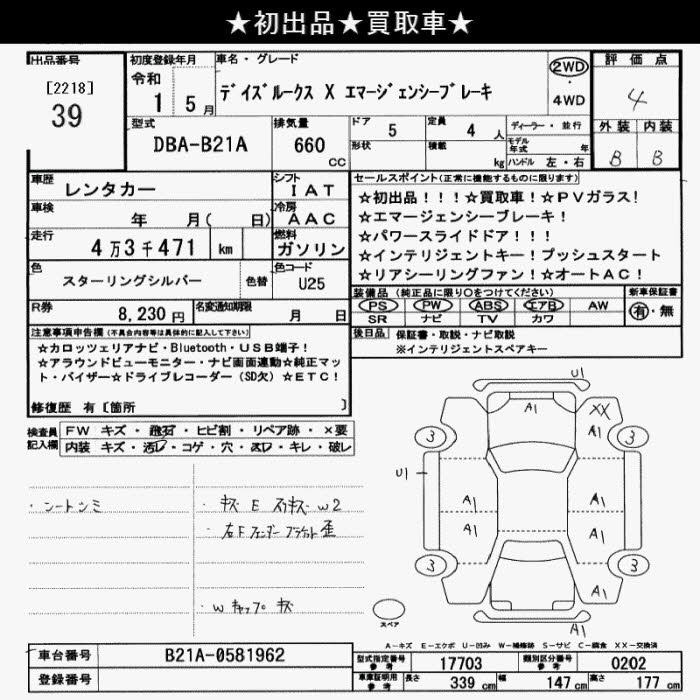 ★初出品★買取車★
出品番号
[2218]
39
初度登録年月
令和
1 5月
車名・グレード
デイズルークス X エマージェンシーブレーキ
2WD
4WD
評価点
4
外装 内装
B B
型式
DBA-B21A
排気量
660 CC
ドア 5
定員 4 人
形状
積載 kg
ディーラー・並行
モデル年式 年
ハンドル 左・右
車歴 レンタカー
シフト IAT
車検 年 月( 日)
冷房 AAC
走行 4万3千471 km
燃料 ガソリン
色 スターリングシルバー 色替
色コード U25
R券 8,230円
名変通知期限 月 日
セールスポイント(正常に機能するものに限ります)
☆初出品!!!☆買取車!☆PVガラス!
☆エマージェンシーブレーキ!
☆パワースライドドア!!!
☆インテリジェントキー!プッシュスタート
☆リアシーリングファン!☆オートAC!
装備品(純正品に限り○をつけてください)
PS PW ABS エアB AW
SR ナビ TV カワ
新車保証書
有・無
後日品 保証書・取説・ナビ取説
※インテリジェントスペアキー
注意事項申告欄(不具合内容等は具体的に記入して下さい)
☆カロッツェリアナビ・Bluetooth・USB端子!
☆アラウンドビューモニター・ナビ画面連動☆純正マッ
ト・バイザー☆ドライブレコーダー(SD欠)☆ETC!
修復歴 有[箇所 ]
検査員記入欄
FW キズ・飛石・ヒビ割・リペア跡・×要
内装 キズ・汚レ・コゲ・穴・スレ・キレ・破レ
・シートシミ
・キズ E スリキズ W2
・右Fフェンダーブラケット歪
・Wキャップ キズ
U1
A1
XX
3
3
U1
A1
A1
A1
A1
3
3
A1
A1
スペア
A-キズ E-エクボ U-凹み W-補修跡 S-サビ C-腐食 XX-交換済
車台番号 B21A-0581962
登録番号
型式指定番号参考 17703
類別区分番号参考 0202
車庫証明用参考 長さ 339 cm 幅 147 cm 高さ 177 cm